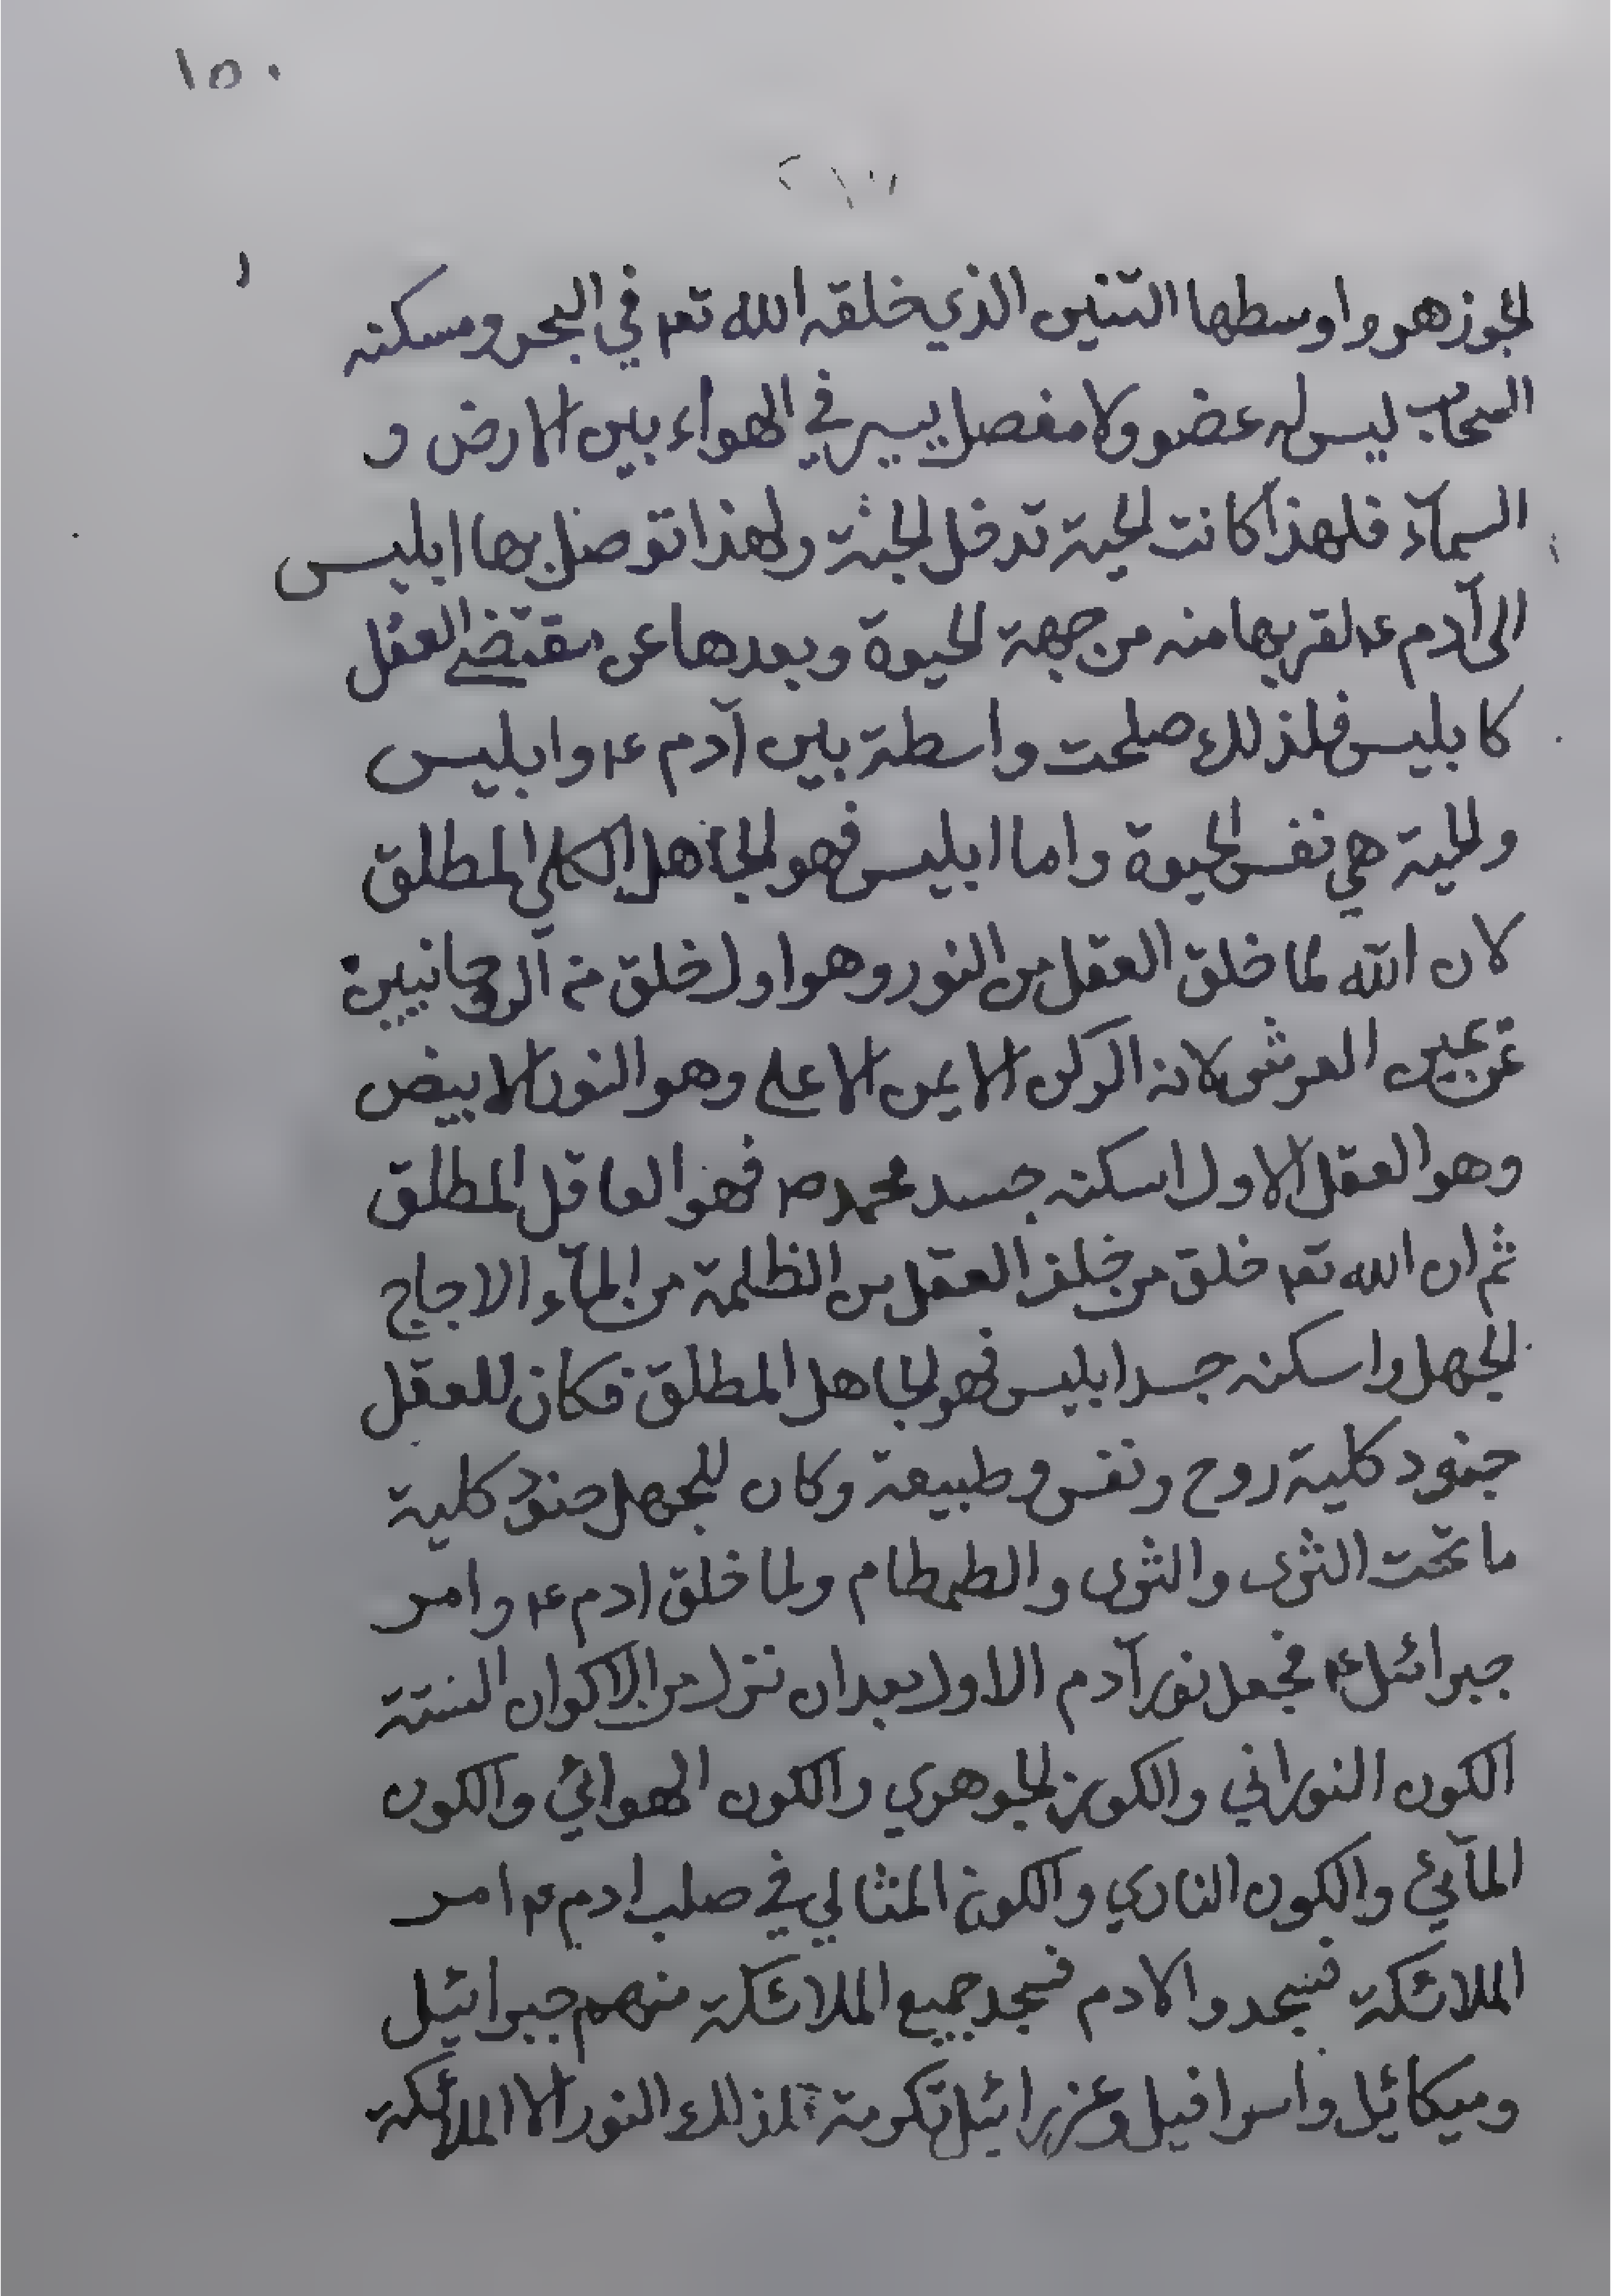 ١٥٠
الجوزهر واوسطها التنين الذي خلقه الله تعم في البحر ومسكنه
السحاب ليس له عضو ولا مفصل يسير في الهواء بين الارض و
السمآء فلهذا كانت الحية تدخل الجنة ولهذا توصل بها ابليس
الى آدم ع لقربها منه من جهة الحيوة وبعدها عن مقتضى العقل
كابليس فلذلك صلحت واسطة بين آدم ع وابليس
والحية هي نفس الحيوة واما ابليس فهو الجاهل الكلي المطلق
لان الله لما خلق العقل من النور وهو اول خلق من الروحانيين
عن يمين العرش لانه الركن الايمن الاعلى وهو النور الابيض
وهو العقل الاول اسكنه جسد محمد ص فهو العاقل المطلق
ثم ان الله تعم خلق من خلف العقل من الظلمة من المآء الاجاج
الجهل واسكنه جسد ابليس فهو الجاهل المطلق فكان للعقل
جنود كلية روح ونفس وطبيعة وكان للجهل جنود كلية
ما تحت الثرى والثرى والطمطام ولما خلق ادم ع وامر
جبرائيل ع فجعل نور آدم الاول بعد ان نزل من الاكوان الستة
الكون النوراني والكون الجوهري والكون الهوائي والكون
المآئي والكون الناري والكون المثالي في صلب ادم ع امر
الملائكة فسجدوا لادم فسجد جميع الملائكة منهم جبرائيل
وميكائيل واسرافيل وعزرائيل تكرمة لذلك النور الا الملائكة